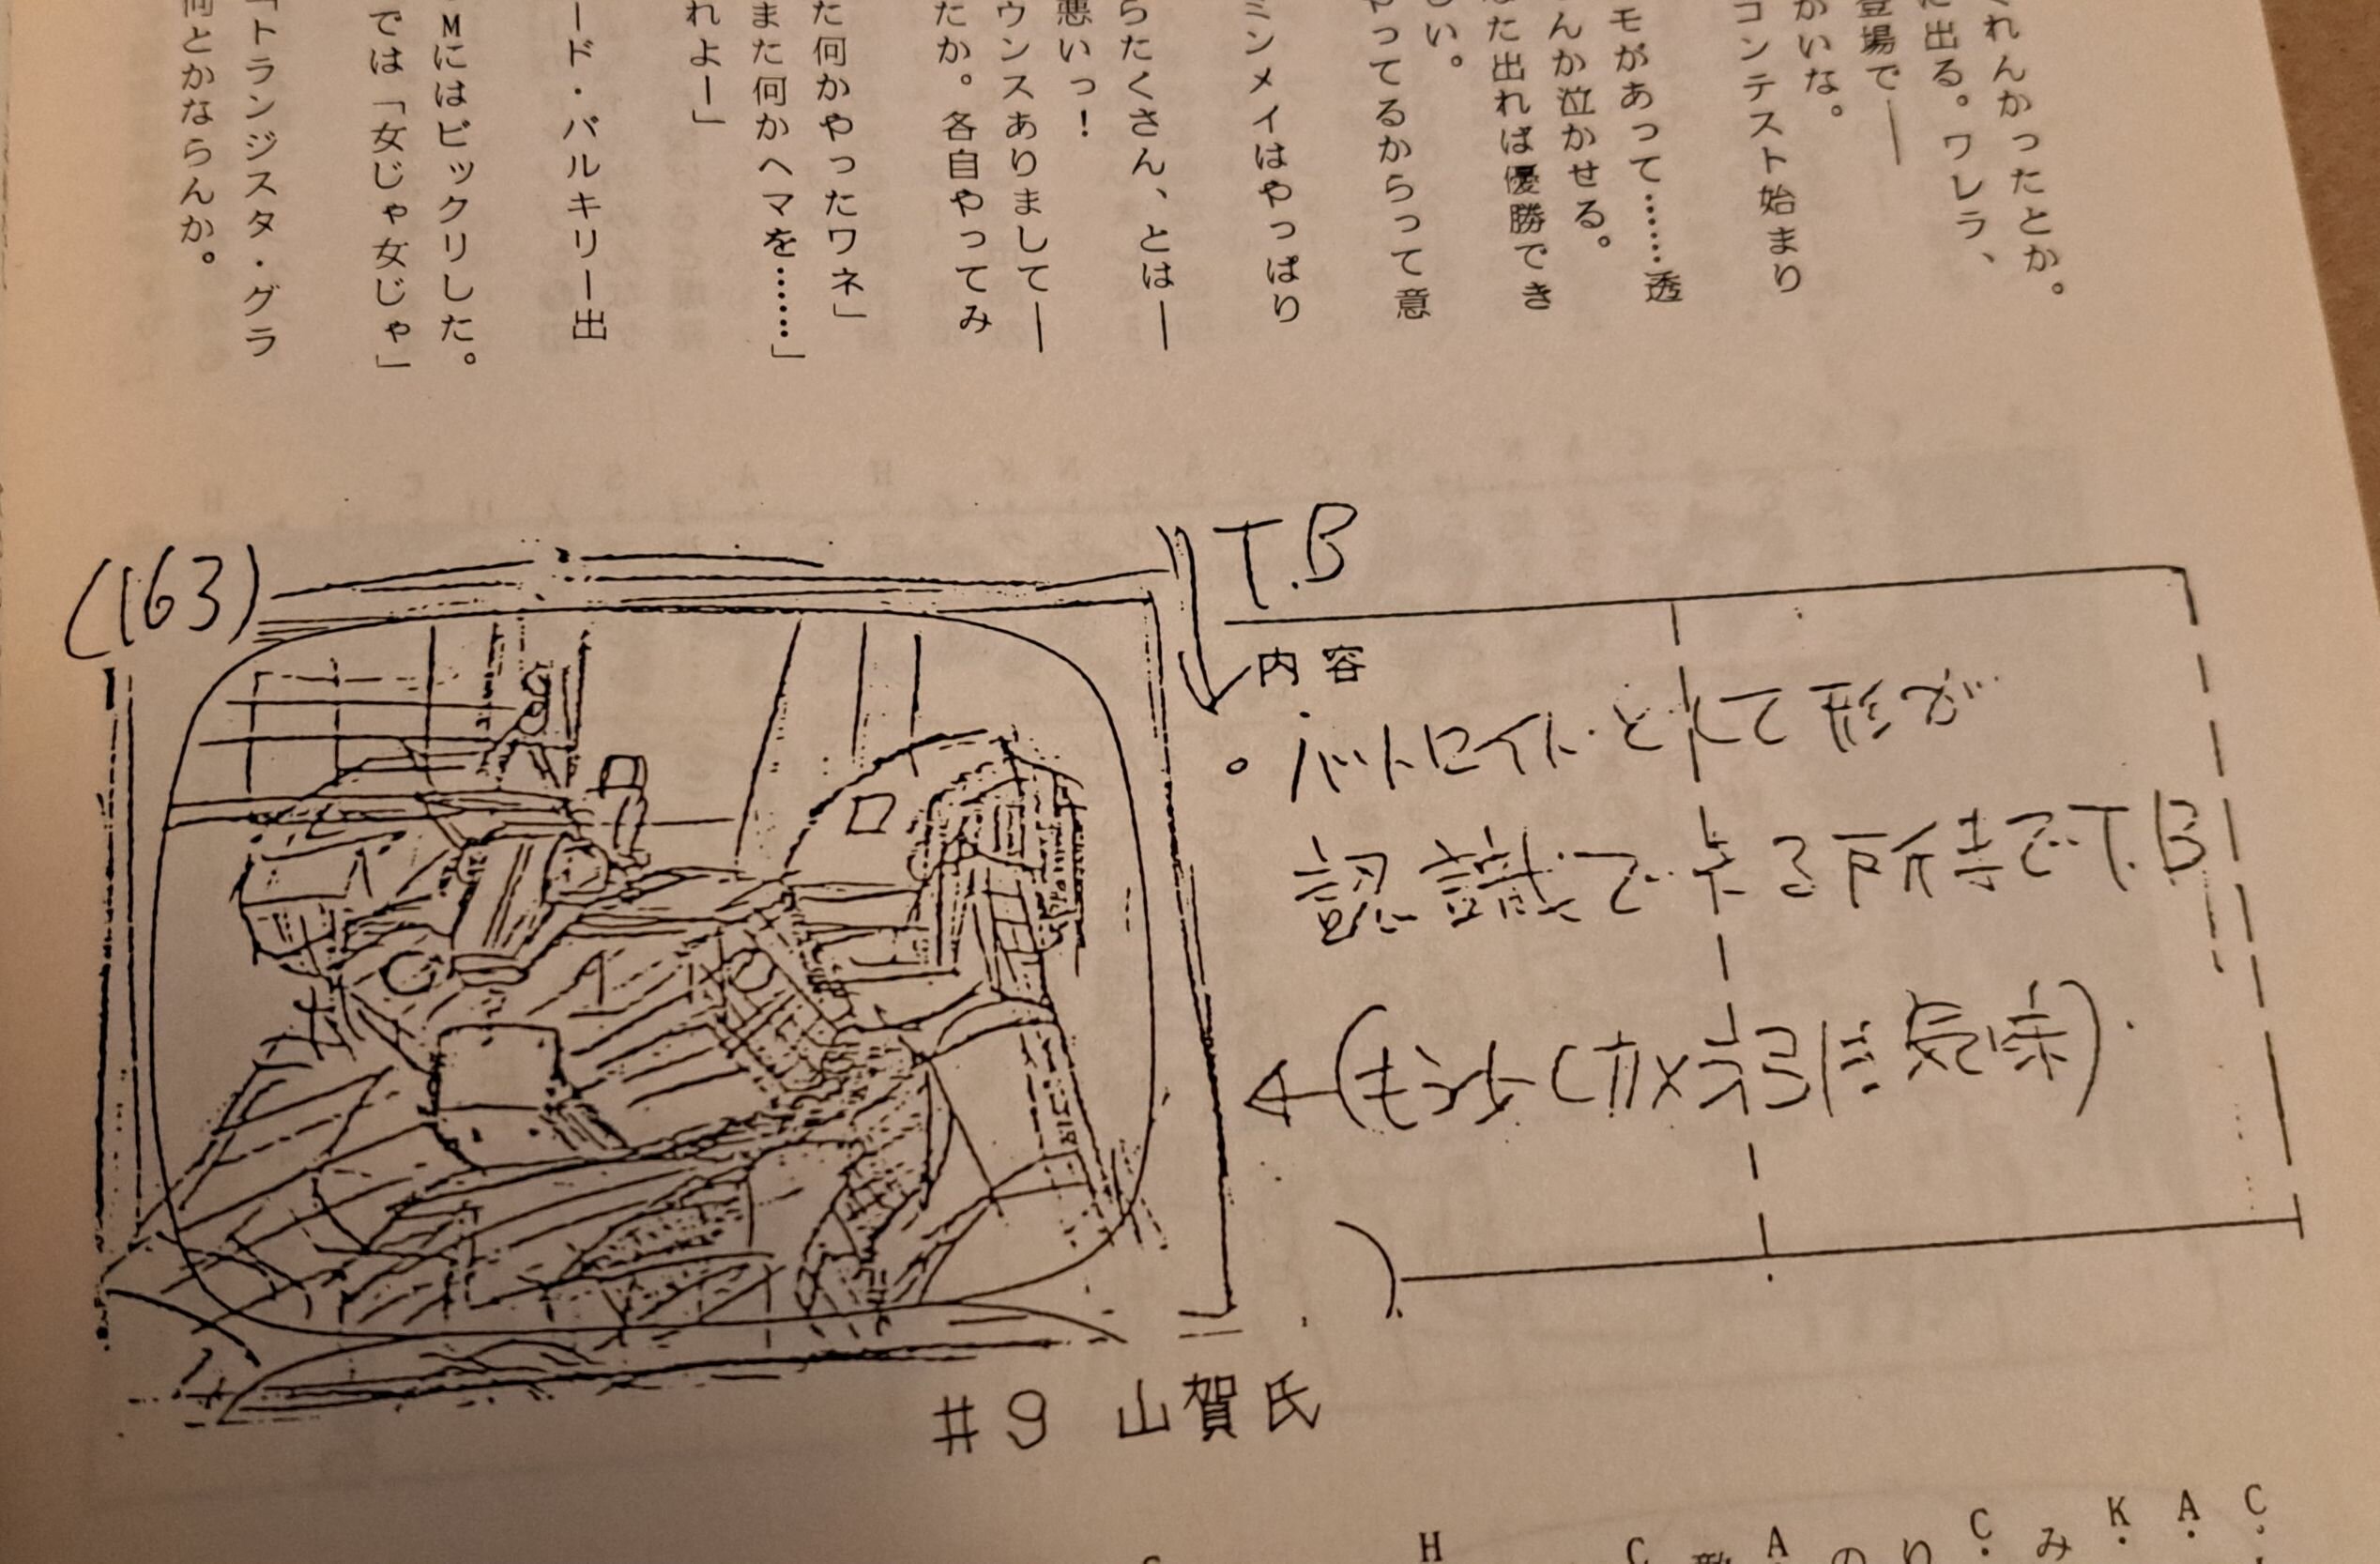 くれんかったとか。
に出る。ワレラ、
登場で―
かいな。
コンテスト始まり
モがあって……透
んか泣かせる。
た出れば優勝でき
しい。
やってるからって意
ミンメイはやっぱり
らたくさん、とは―
悪いっ！
ウンスありまして―
たか。各自やってみ
た何かやったワネ」
また何かヘマを……」
れよー」
ード・バルキリー出
Mにはビックリした。
では「女じゃ女じゃ」
「トランジスタ・グラ
何とかならんか。
(163)
T.B
内容
。バトロイドとして形が
認識できる所までT.B
気味)
#9 山賀氏
C
A
K
み
C
り
の
A
C
H